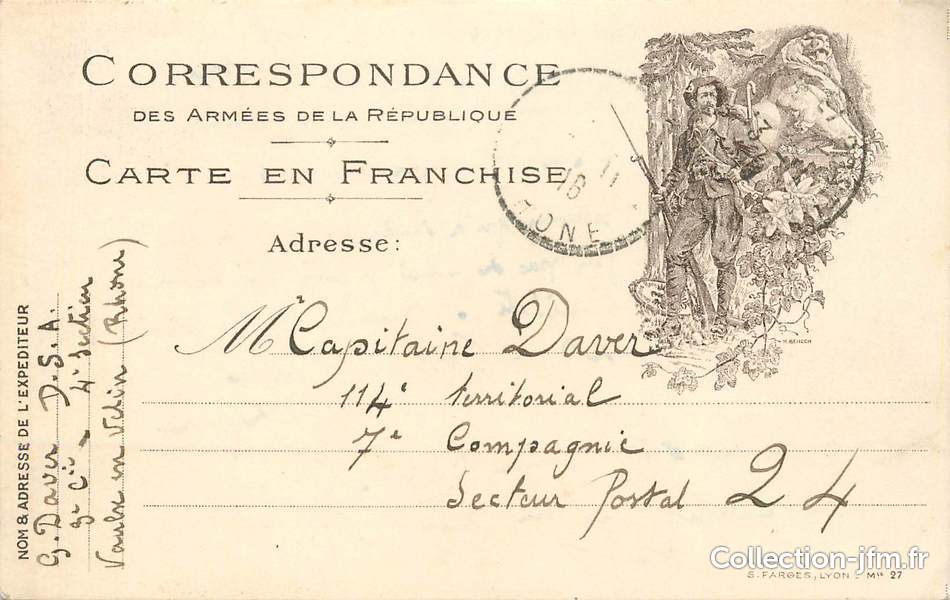 CORRESPONDANCE
DES ARMÉES DE LA RÉPUBLIQUE
CARTE EN FRANCHISE
Adresse:
Mr Capitaine Daver
114e territorial
7e Compagnie
Secteur Postal 24
NOM & ADRESSE DE L'EXPEDITEUR
G. Daver D.S.A.
9e Cie - 4e Section
Vaulx en Velin (Rhone)
18 11
HONE
Collection-jfm.fr
S. FARGES, LYON - Mle 27